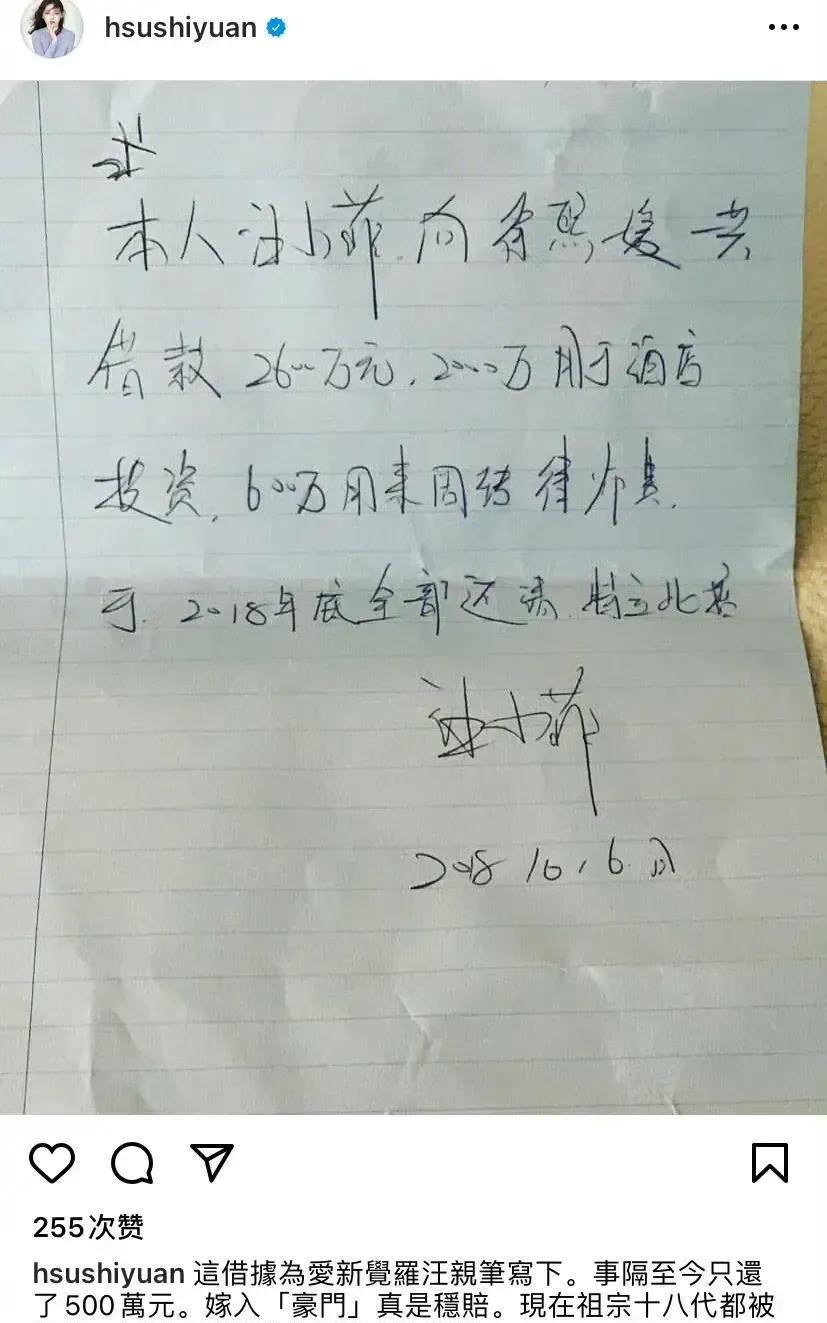 hsushiyuan
本人汪小菲向徐熙媛共
借款2600万元，2000万用于酒店
投资，600万用来周转律师费.
于2018年底全部还清.特立此据
汪小菲
2018.10.6.
255次赞
hsushiyuan 這借據為愛新覺羅汪親筆寫下。事隔至今只還
了500萬元。嫁入「豪門」真是穩賠。現在祖宗十八代都被